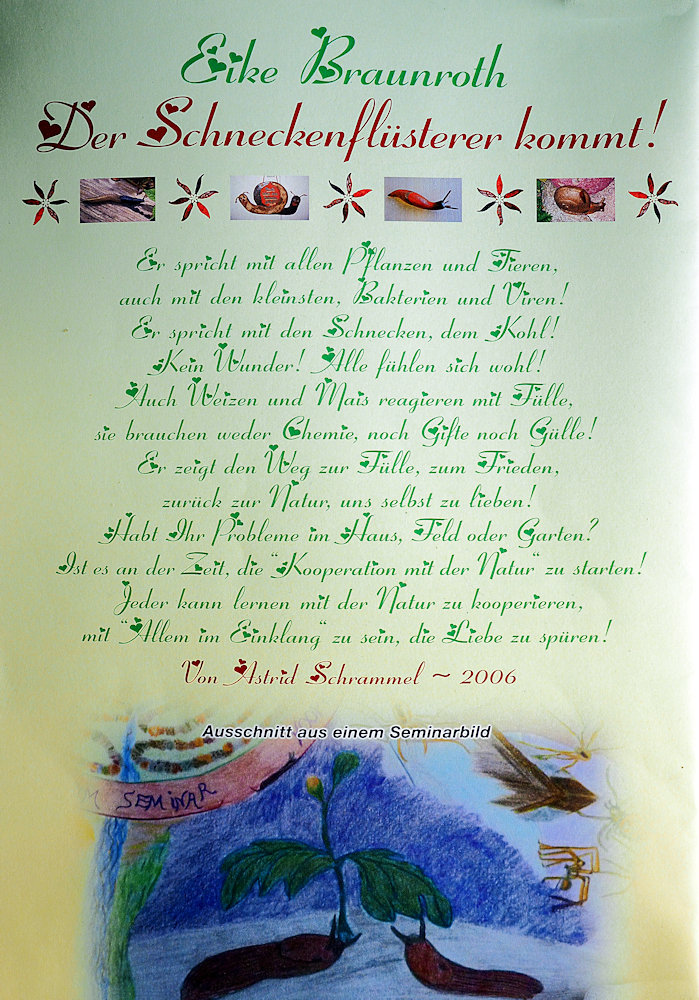 Eike Braunroth
Der Schneckenflüsterer kommt!
Er spricht mit allen Pflanzen und Tieren,
auch mit den kleinsten, Bakterien und Viren!
Er spricht mit den Schnecken, dem Kohl!
Kein Wunder! Alle fühlen sich wohl!
Auch Weizen und Mais reagieren mit Fülle,
sie brauchen weder Chemie, noch Gifte noch Gülle!
Er zeigt den Weg zur Fülle, zum Frieden,
zurück zur Natur, uns selbst zu lieben!
Habt Ihr Probleme im Haus, Feld oder Garten?
Ist es an der Zeit, die "Kooperation mit der Natur" zu starten!
Jeder kann lernen mit der Natur zu kooperieren,
mit "Allem im Einklang" zu sein, die Liebe zu spüren!
Von Astrid Schrammel ~ 2006
Ausschnitt aus einem Seminarbild
SEMINAR